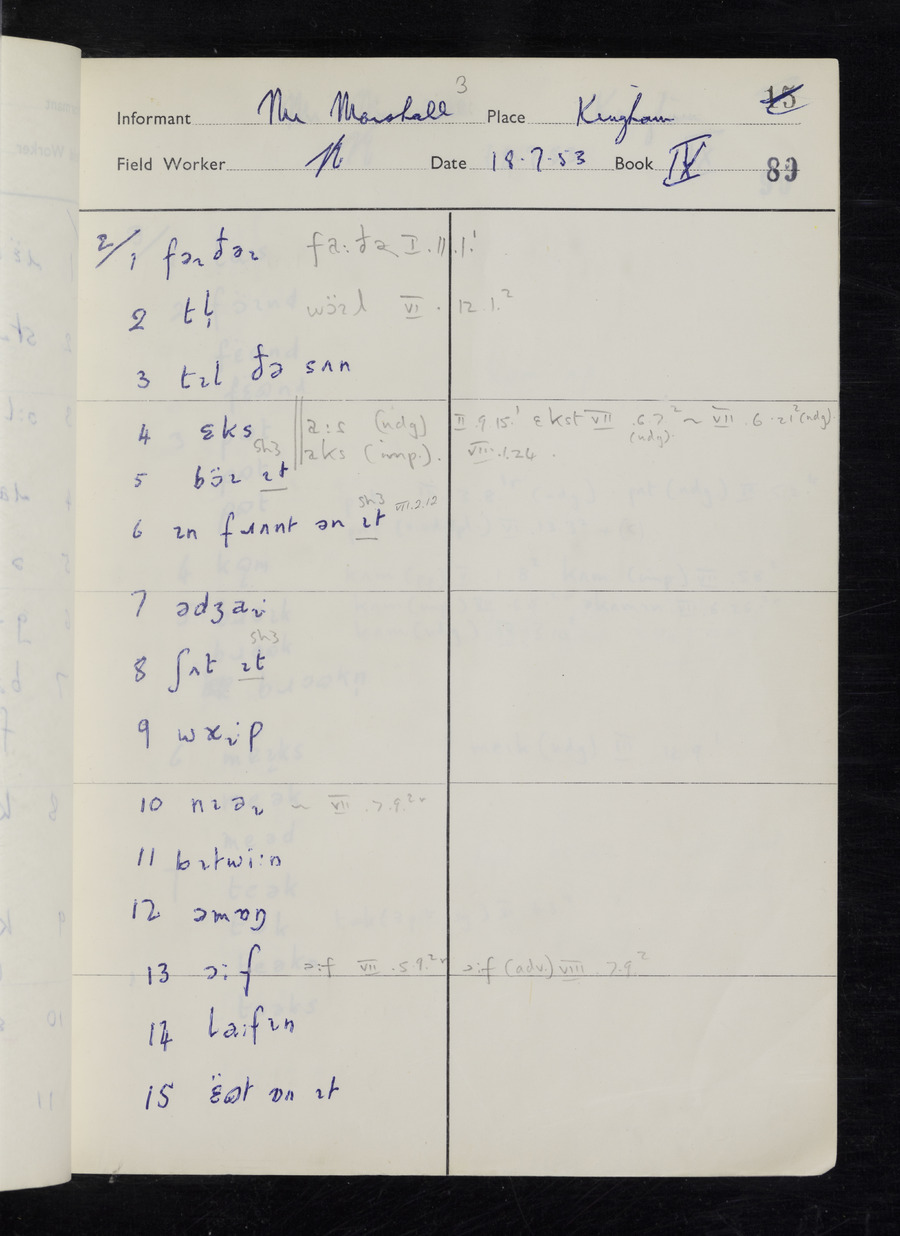 3
Informant Mr Marshall Place Kingham 15
Field Worker Date 18·7·53 Book IV 89
2/1 fəɹðəɹ fa:ðə I.11.1.¹
2 tl̩ wɔ̈ɹl VI.12.1.²
3 tɪl ðə sʌn
4 ɛks a:s (ndg) II.9.15.¹ ɛkst VII.6.7.² ~ VII.6.21² (ndg).
aks (imp). (ndg). VIII.1.24.
sh3
5 bɔ̈ɹ ɪt
sh3 VII.2.12
6 ɪn fɹʌnt ən ɪt
7 ədʒəi
sh3
8 ʃʌt ɪt
10 nɪəɹ ~ VII.7.9.²
11 bɪtwi:n
12 əmɒŋ
13 ɔ:f ɔ:f VII.5.9.² ɔ:f (adv.) VIII.7.9.²
14 laifɪn
15 ɒn ɪt